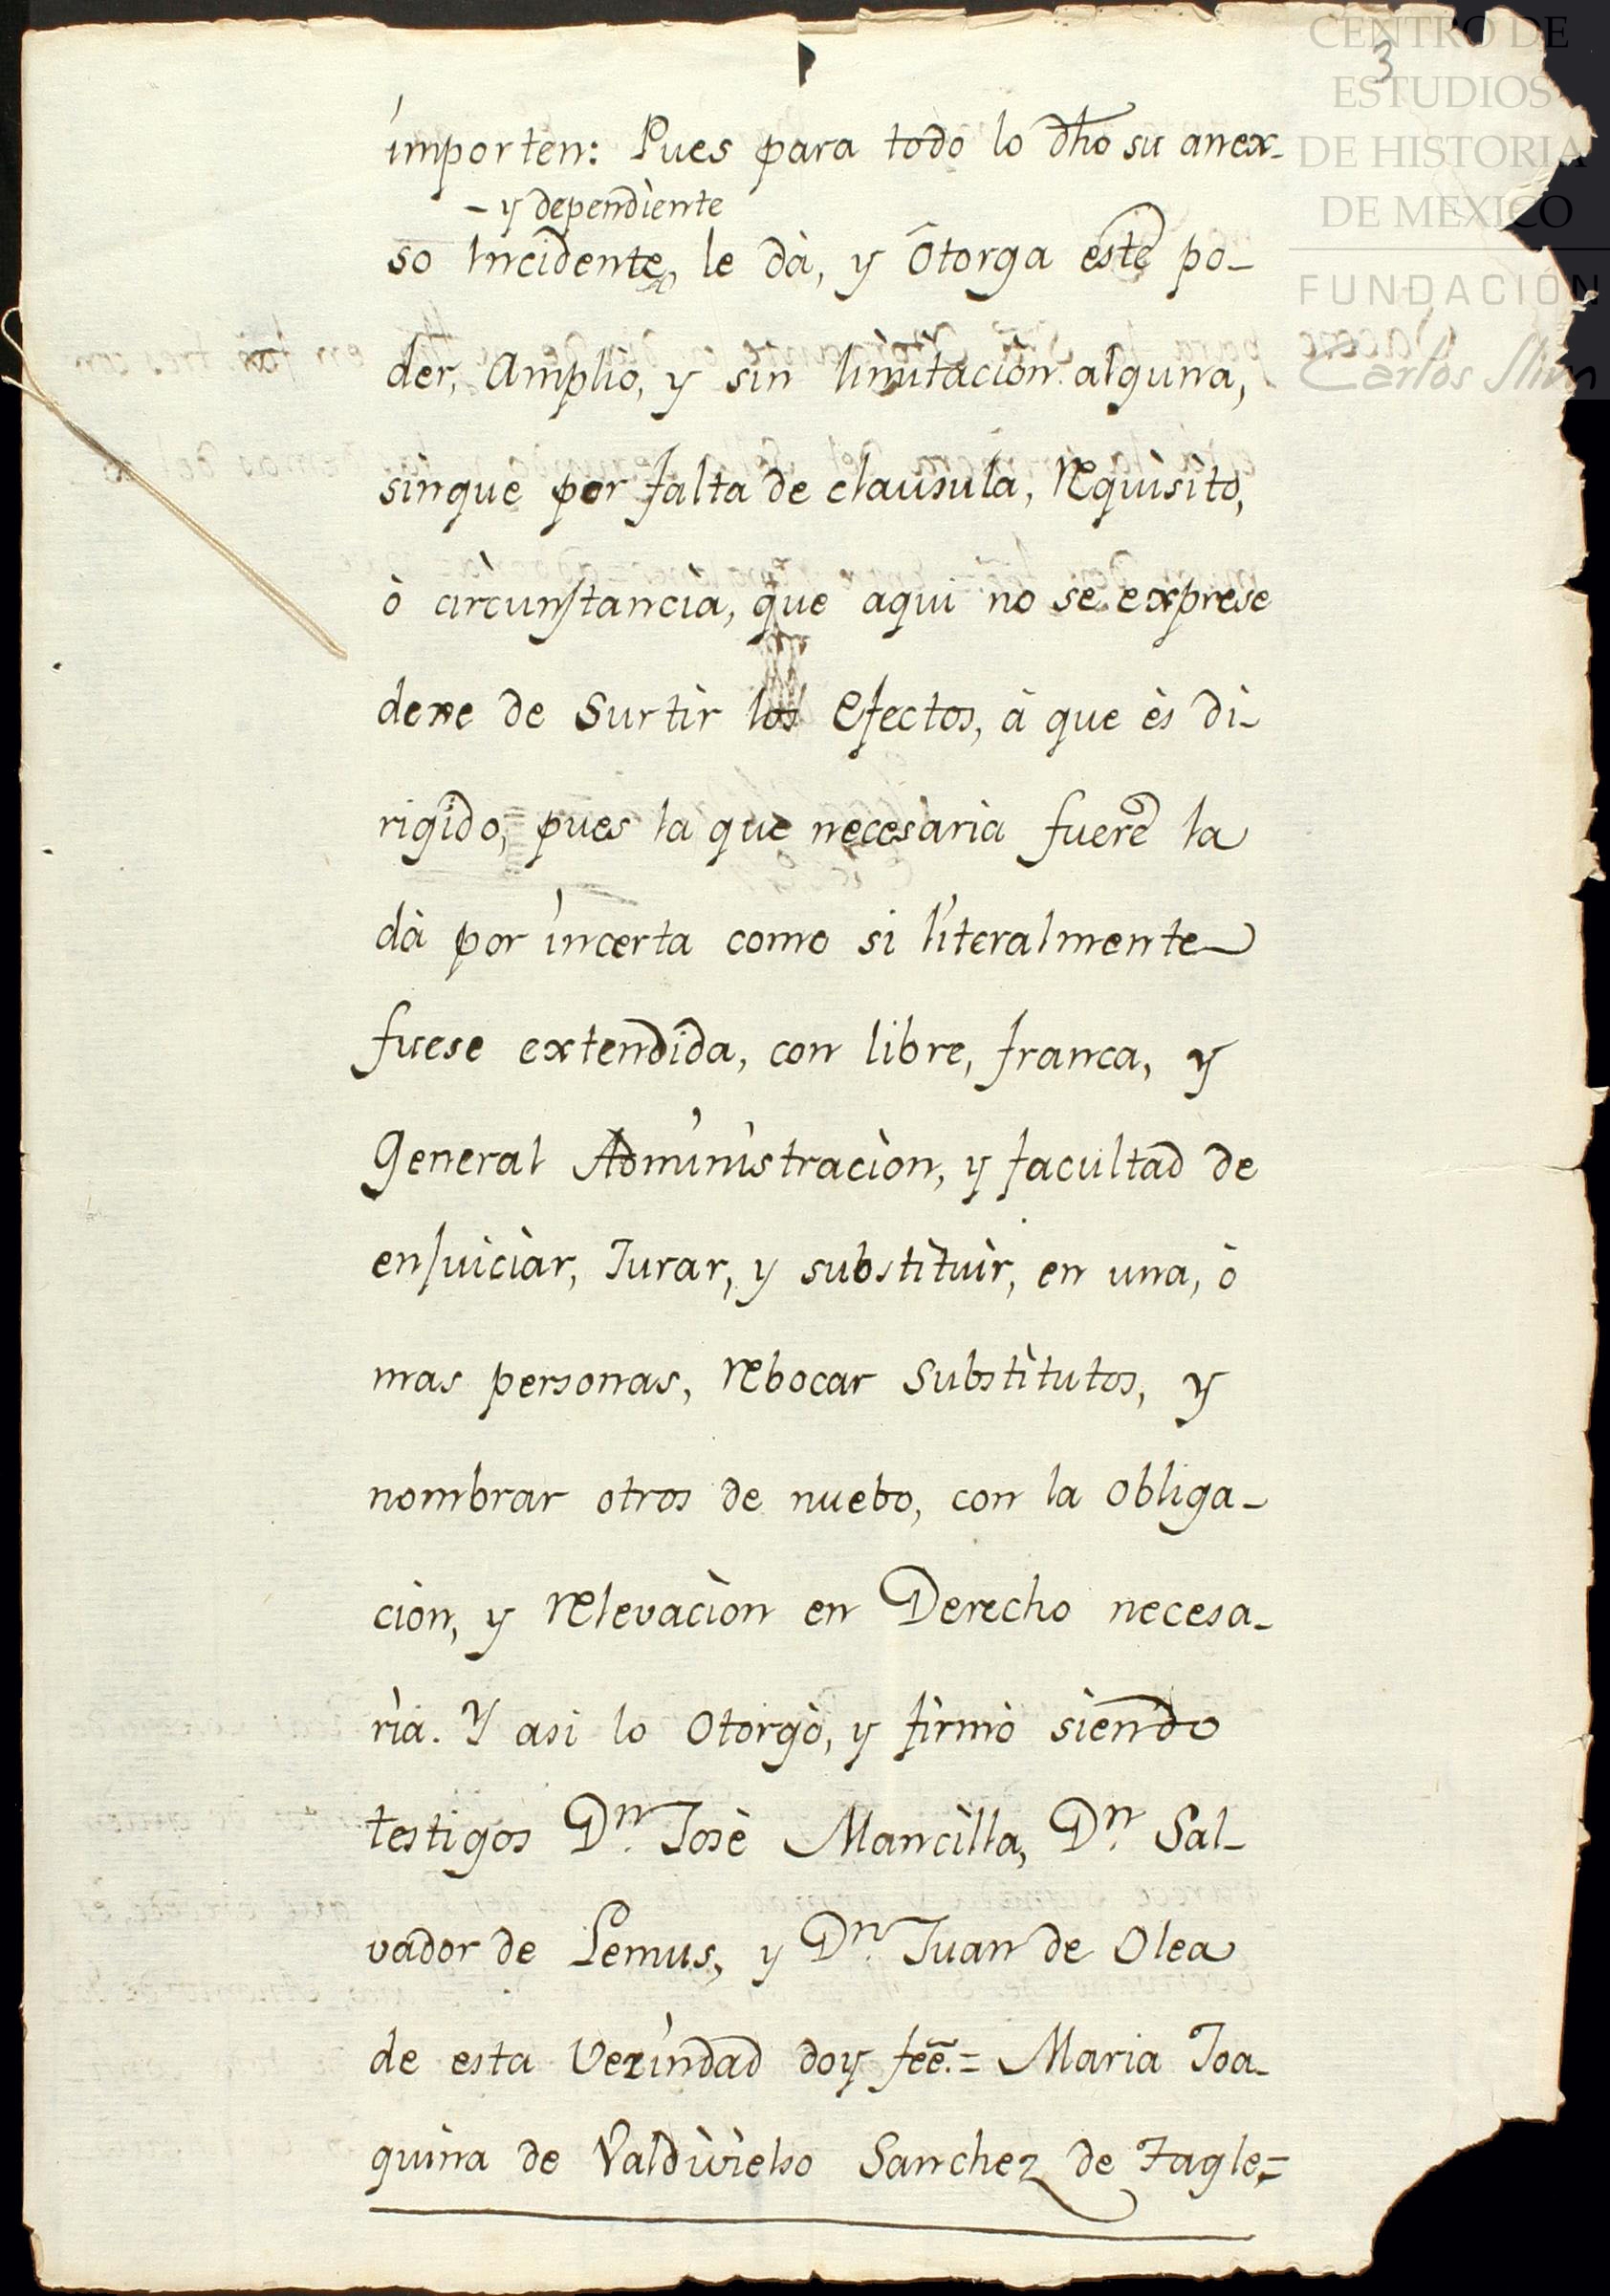 3
CENTRO DE
ESTUDIOS
DE HISTORIA
DE MEXICO
FUNDACIÓN
Carlos Slim
importen: Pues para todo lo dho su anex-
- y dependiente
so Incidente, le dà, y Otorga este po-
der, Amplio, y sin limitaciòn alguna,
sinque por falta de clausula, requisito,
ò circunstancia, que aqui no se exprese
dexe de Surtir los Efectos, à que ès di-
rigido, pues la que necesaria fuere la
dà por incerta como si literalmente
fuese extendida, con libre, franca, y
General Administraciòn, y facultad de
enjuiciar, Jurar, y substituir, en una, ò
mas personas, rebocar Substitutos, y
nombrar otros de nuebo, con la obliga-
ciòn, y relevaciòn en Derecho necesa-
ria. Y asi lo Otorgò, y firmò siendo
testigos Dn. Josè Mancilla, Dn. Sal-
vador de Lemus, y Dn. Juan de Olea
de esta Vezindad doy feê.= Maria Joa-
quina de Valdivielso Sanchez de Tagle,=